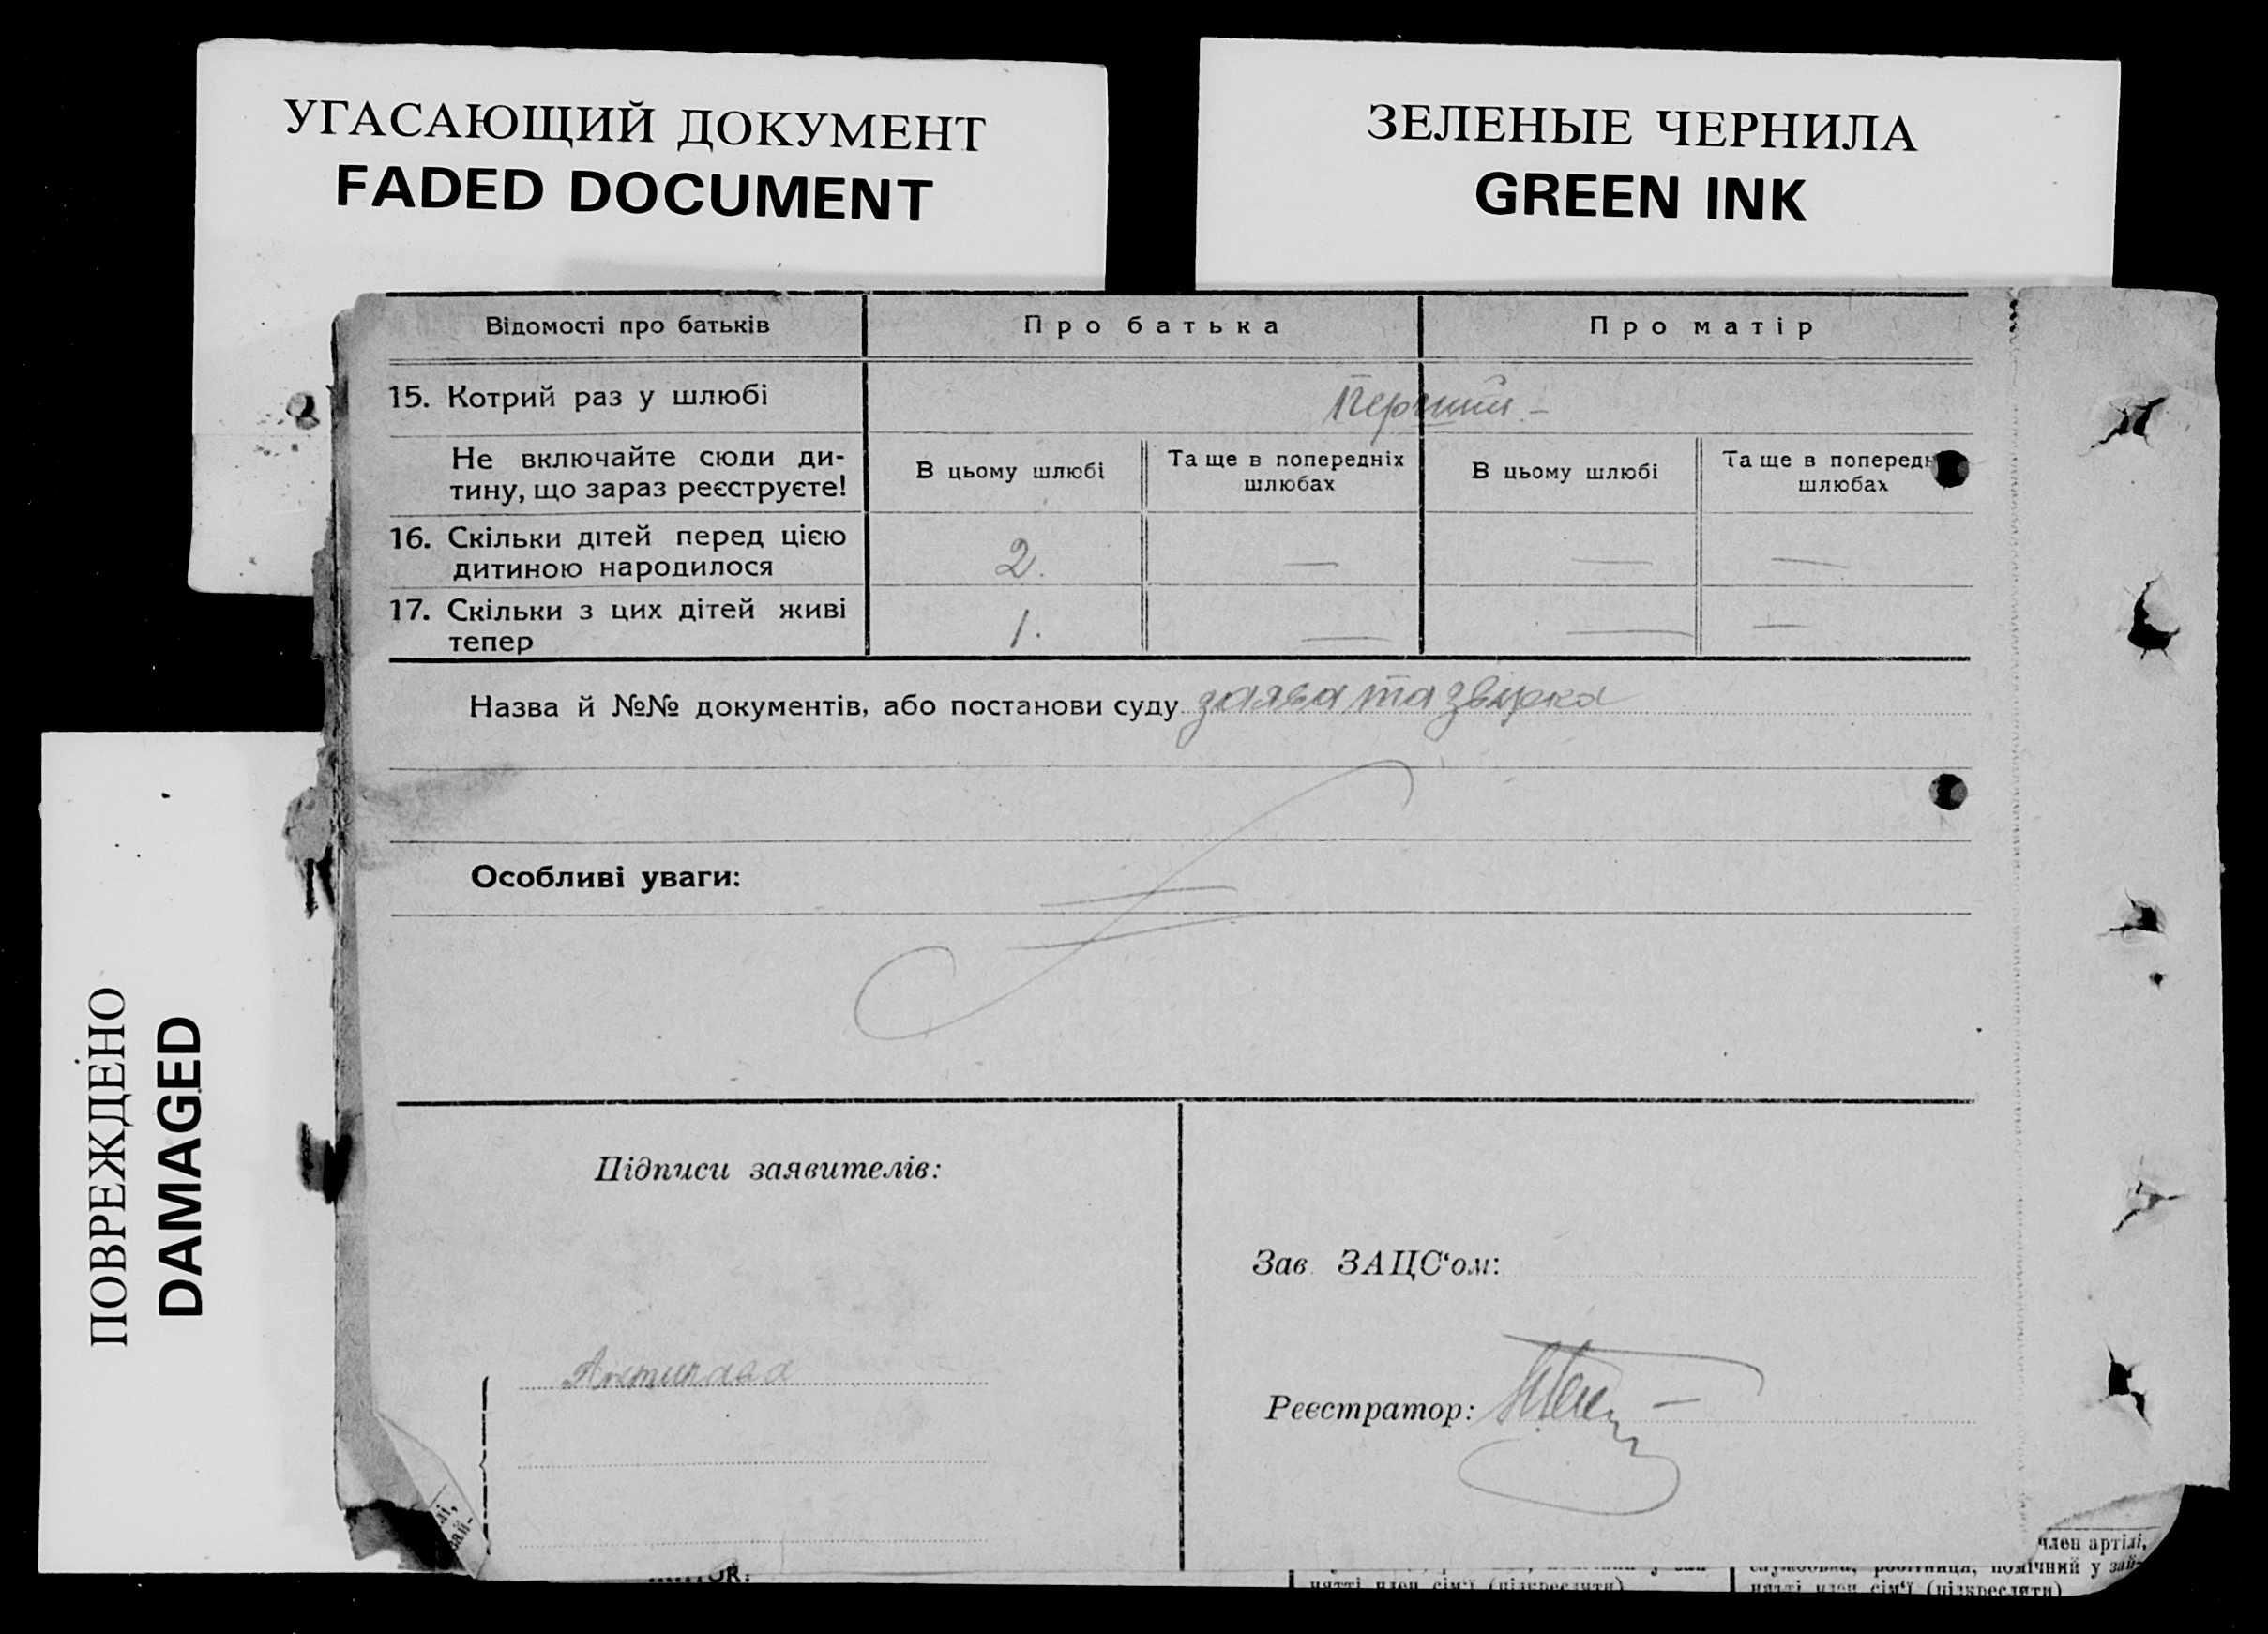 УГАСАЮЩИЙ ДОКУМЕНТ
FADED DOCUMENT
ЗЕЛЕНЫЕ ЧЕРНИЛА
GREEN INK
ПОВРЕЖДЕНО
DAMAGED
Відомості про батьків Про батька Про матір
15. Котрий раз у шлюбі Перший –
Не включайте сюди ди-
тину, що зараз реєструєте!
В цьому шлюбі
Та ще в попередніх
шлюбах
В цьому шлюбі
Та ще в попередн
шлюбах
16. Скільки дітей перед цією
дитиною народилося
2. — — —
17. Скільки з цих дітей живі
тепер
1. — — —
Назва й №№ документів, або постанови суду заява та звірка
Особливі уваги:
Підписи заявителів:
Зав. ЗАЦС‘ом:
Реєстратор:
лі,
зай-
член артілі,
службовка, робітниця, помічний у зай-
нятті член сім‘ї (підкреслити)
нятті член сім‘ї (підкреслити)